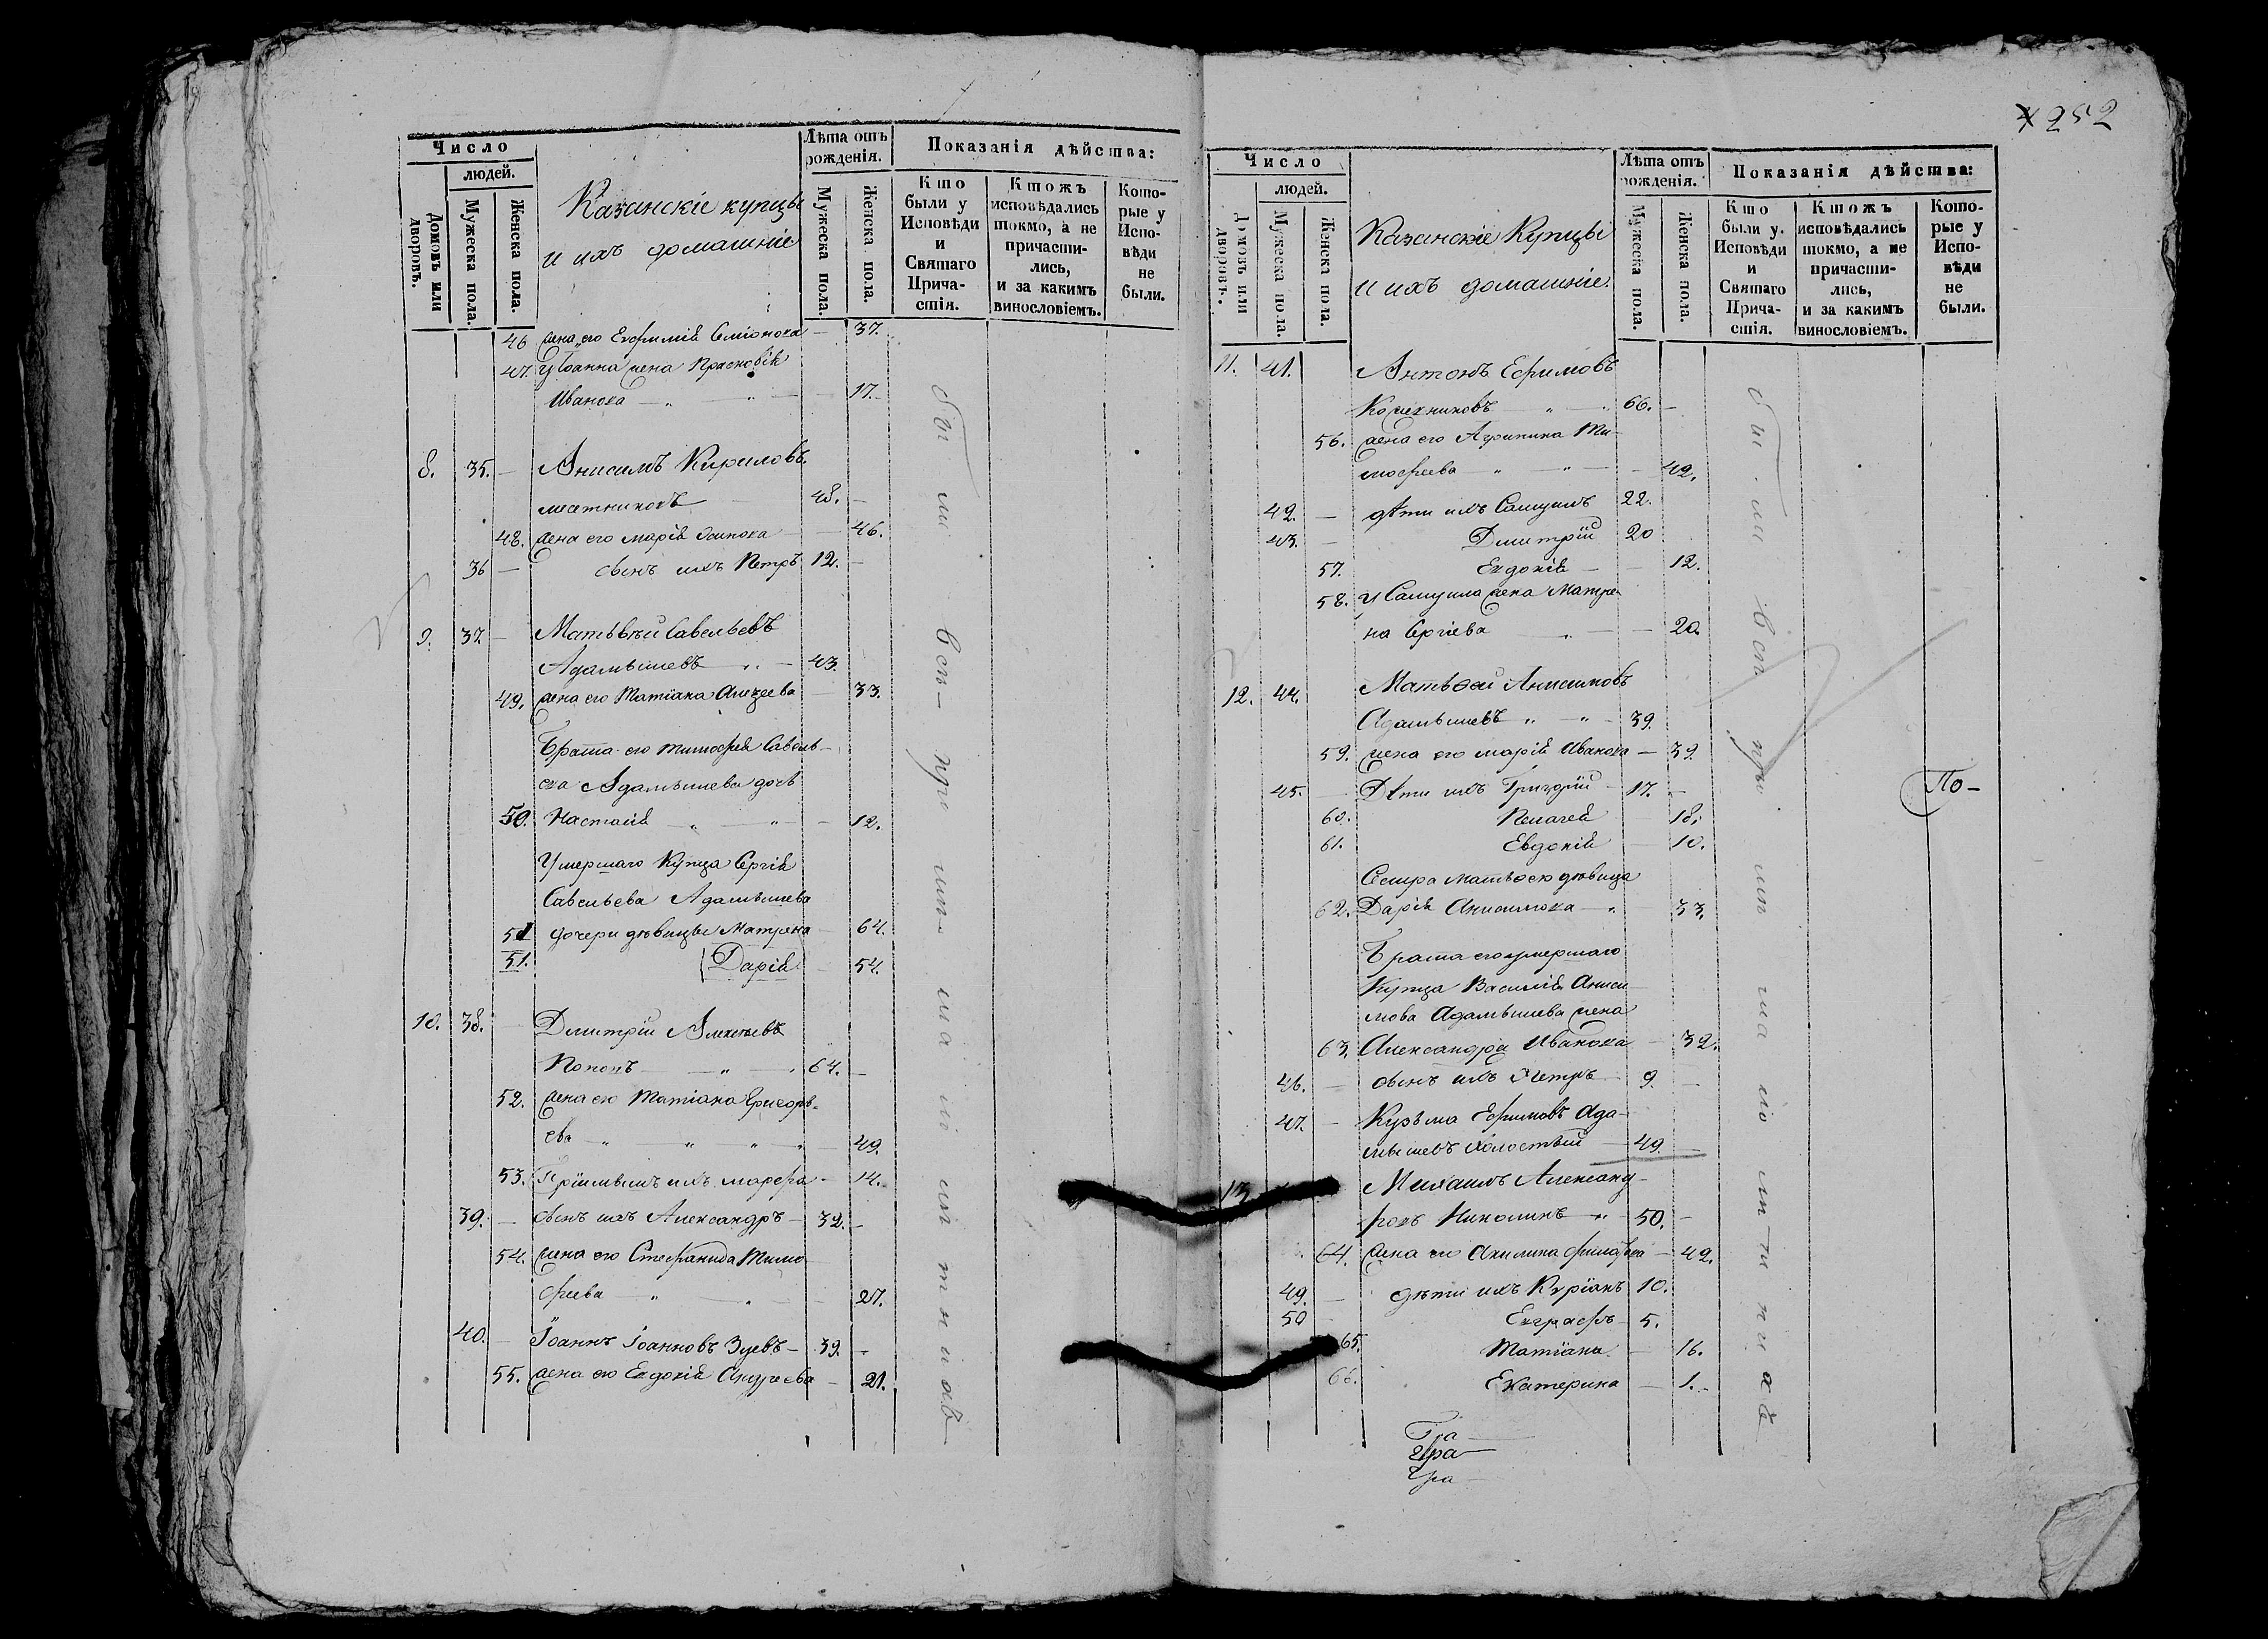 252
Число
людей.
Домовъ или дворовъ.
Мужеска пола.
Женска пола.
Казанскіе купцы
и ихъ домашніе
Лѣта отъ рожденія.
Мужеска пола.
Женска пола.
Показанія дѣйства:
Кто были у Исповѣди и Святаго Причастія.
Ктожъ исповѣдались токмо, а не причастились, и за какимъ винословіемъ.
Которые у Исповѣди не были.
46 жена его Евфимія Семіонова — 37.
47. У Іоанна жена Прасковія
Иванова — 17.
8. 35. — Анисимъ Кириловъ
48. —
48. жена его Марія Осипова — 46.
36 — сынъ ихъ Петръ 12. —
9. 37 — Матьвѣй Савельевъ
Адамышевъ — 43.
49. жена его Татіана Алезеева — 33.
Брата его Тимофея Савель-
ева Адамышева дочь
50. Настасія — 12.
Умершаго Купца Сергія
Савельева Адамышева
51 дочери дѣвицы Матрена — 64.
51. Дарія — 54.
10. 38. — Дмитрій Алексѣевъ
Поповъ — 64. —
52. жена его Татіана Григорь-
ева — 49.
53. Пріимышъ ихъ Марфа — 14.
39. — сынъ ихъ Александръ — 32. —
54. жена его Стефанида Тимо
феева — 27.
40. — Іоаннъ Іоанновъ Зуевъ — 39. —
55. жена его Евдокія Андреева — 21.
были вси при
Число
людей.
Домовъ или дворовъ.
Мужеска пола.
Женска пола.
Казанскіе Купцы
и ихъ домашніе
Лѣта отъ рожденія.
Мужеска пола.
Женска пола.
Показанія дѣйства:
Кто были у Исповѣди и Святаго Причастія.
Ктожъ исповѣдались токмо, а не причастились, и за какимъ винословіемъ.
Которые у Исповѣди не были.
11. 41. Антонъ Ефимовъ
66. —
56. жена его Агрипина Ти-
мофеева — 42.
42. — дѣти ихъ Самуилъ 22.
43. — Дмитрій 20
57. Евдокія — 12.
58. У Самуила жена Матре-
на Сергіева — 20.
12. 44. Матьвѣй Анисимовъ
Адамышевъ — 39.
59. жена его Марія Иванова — 39
45. — Дѣти ихъ Григорій — 17. —
60. Пелагея — 18.
61. Евдокія — 10.
Сестра Матьвѣя дѣвица
62. Дарія Анисимова — 33.
Брата его умершаго
Купца Василія Аниси
мова Адамышева жена
63. Александра Иванова — 32.
46. — сынъ ихъ Петръ — 9. —
47. — Кузьма Ефимовъ Ада-
мышевъ Холостый — 49. —
13 Михаилъ Александ-
ровъ Никитинъ — 50. —
64. жена его Акилина — 42.
49. — дѣти ихъ Киріакъ 10.
50 Евграфъ — 5.
65. Татіана — 16.
66. Екатерина — 1. —
были вси при
По-
Гра
Гра
Гра